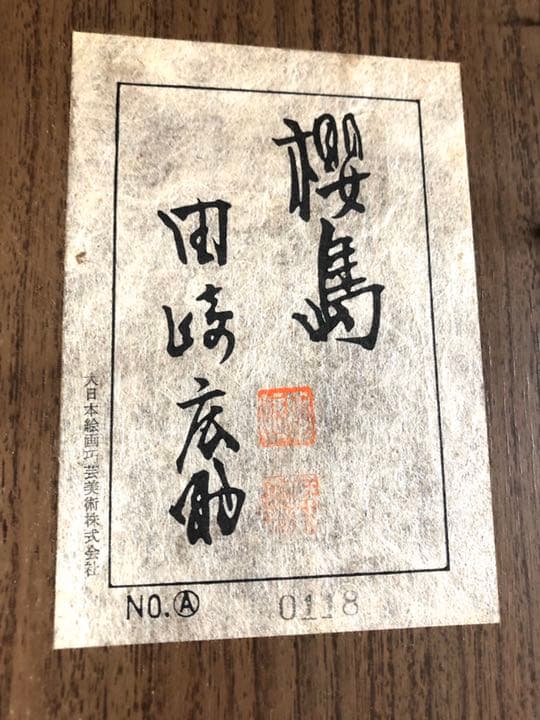 櫻島
田崎広助
大日本絵画巧芸美術株式会社
NO.Ⓐ 0118